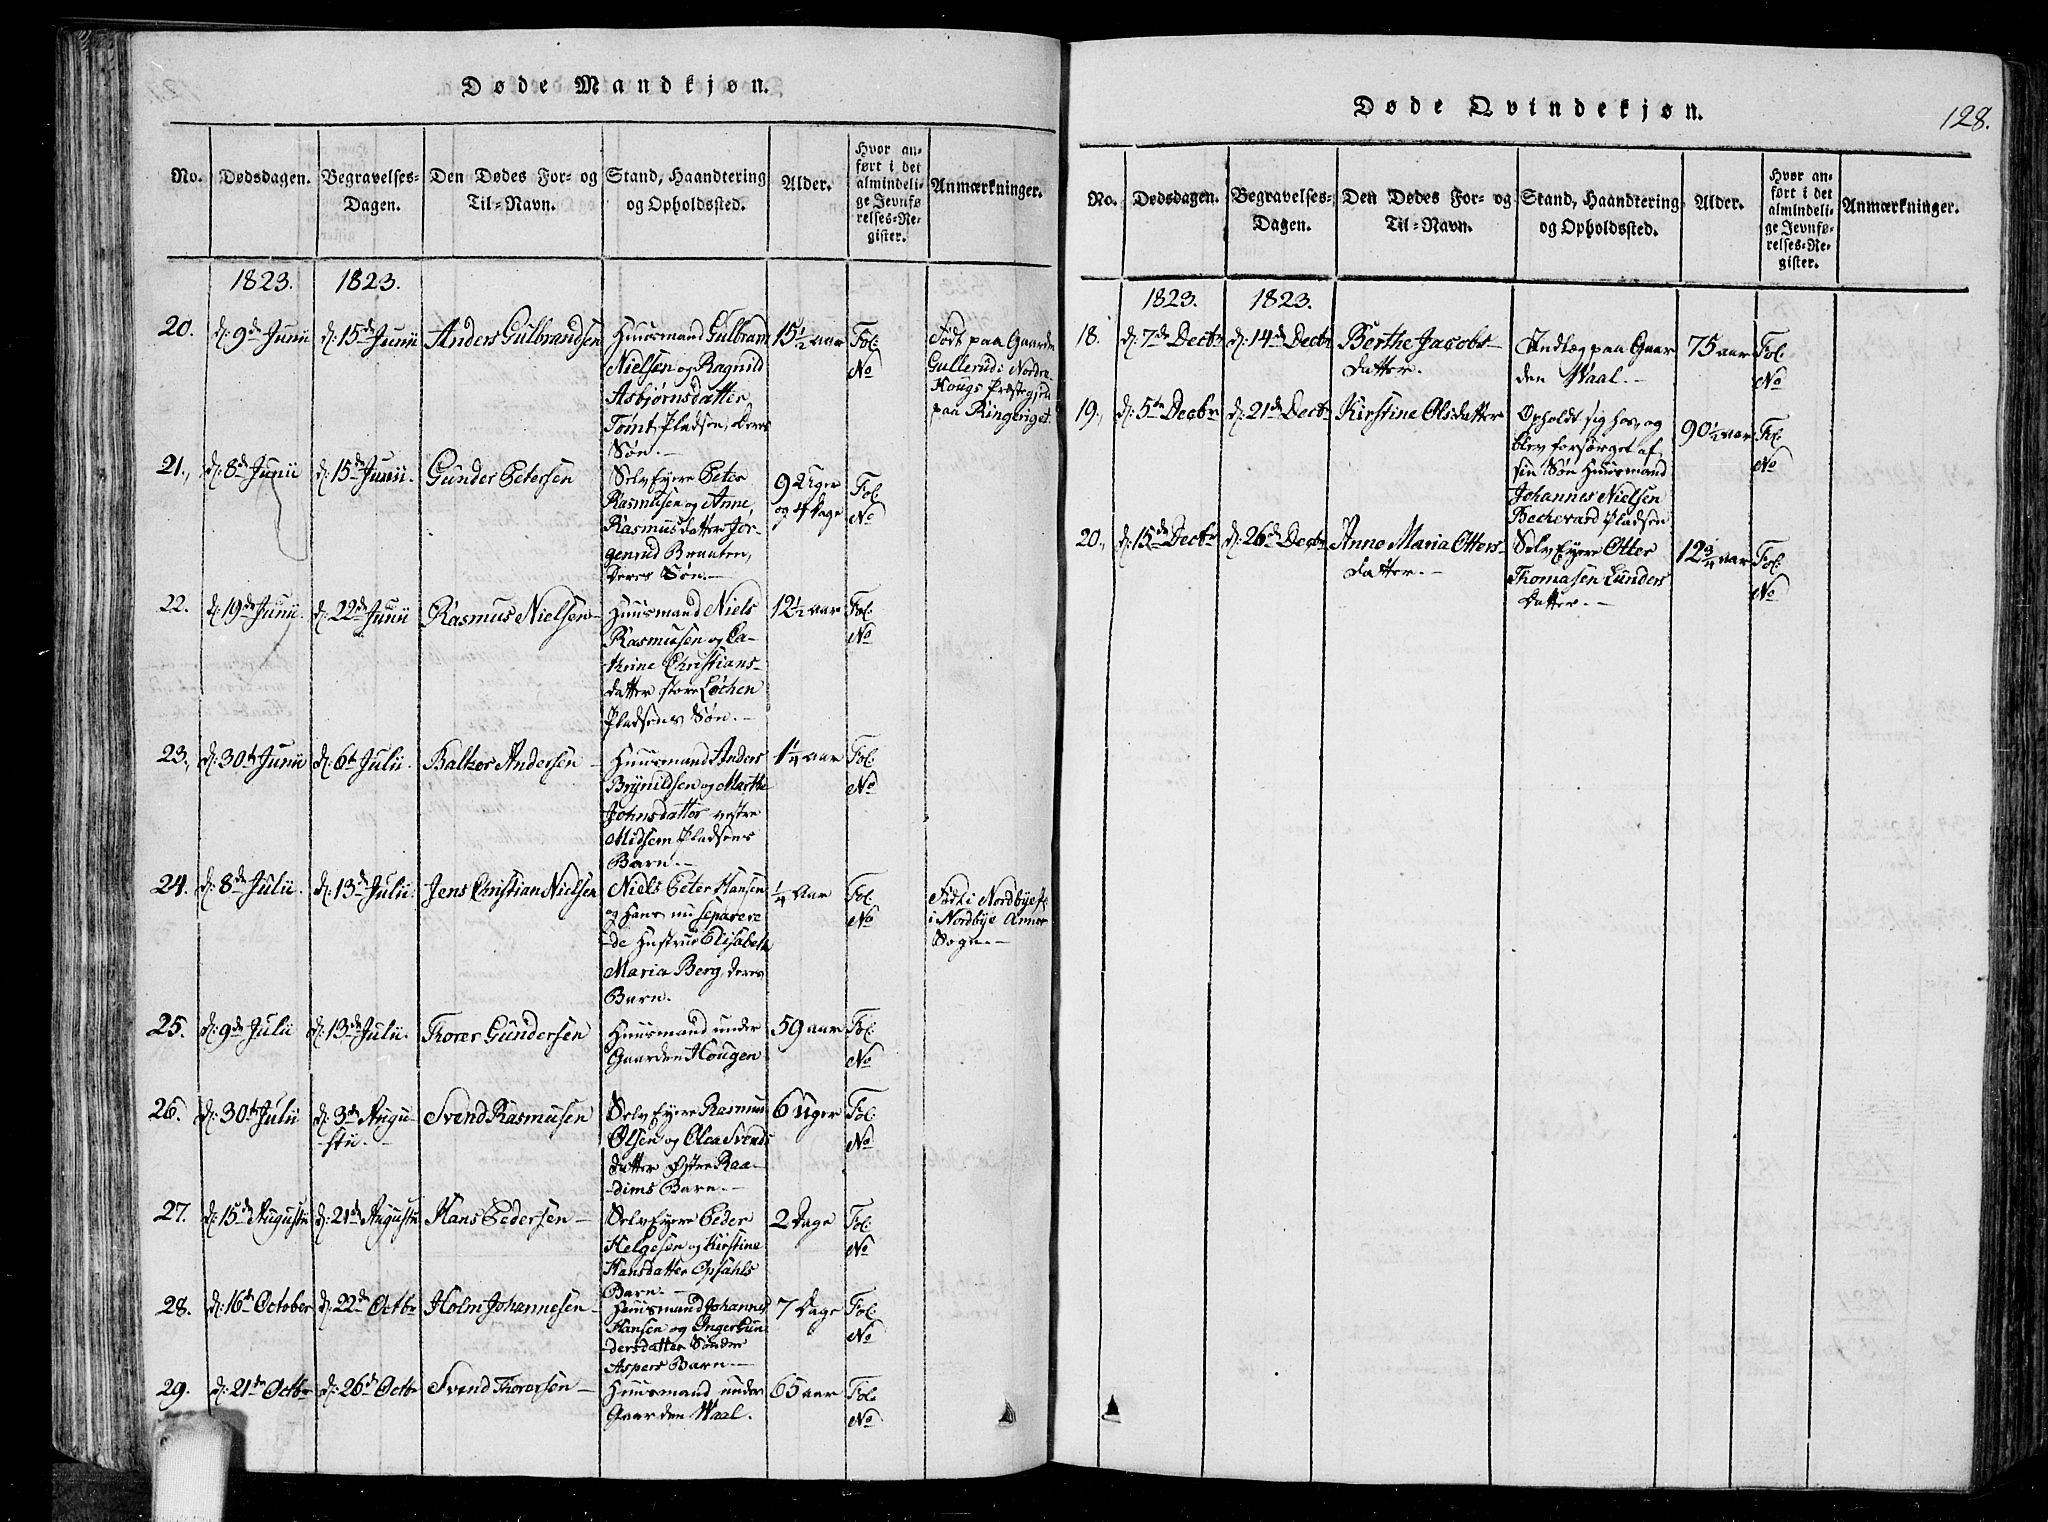 Døde Mandkjøn.
No.
Dødsdagen.
Begravelses-
Dagen.
Den Dødes For- og
Til-Navn.
Stand, Haandtering
og Opholdssted.
Alder.
Hvor an-
ført i det
almindeli-
ge Jevnfø-
relses-Re-
gister.
Anmærkninger.
1823.
1823.
20.
d: 9de Junii
d: 15de Junii
Anders Gulbrandsen
Huusmand Gulbrand
Nielsen og Ragnild
Asbjørnsdatter
Tømt Pladsen, deres
Søn.
15 1/2 aar
Fol.
No
Født paa Gaarden
Gullerud i Nordre
Hougs Præstegjeld
paa Ringeriget.
21.
d: 8de Junii
d: 15de Junii.
Gunder Petersen
Selv Eyere Peter
Rasmusen og Anne
Rasmusdatter Jør-
genrud Braaten,
deres Søn.
9 Uger
og 4 dage
Fol.
No
22.
d: 19de Junii.
d: 22de Junii
Rasmus Nielsen
Huusmand Niels
Rasmusen og Ca-
thrine Christians-
datter store Løchen
Pladsens Søn.
12 1/2 aar
Fol.
No
23.
d: 30te Junii
d: 6te Julii.
Baltzer Andersen
Huusmand Anders
Brynildsen og Marthe
Johnsdatter vestre
Midsem Pladsens
Barn.
1 1/4 aar
Fol.
No
24.
d: 8de Julii.
d: 13de Julii.
Jens Christian Nielsen
Niels Peter Hansen
og Hans nu separere
de Hustrue Elisabeth
Maria Berg, deres
Barn.
1/4 Aar
Fol.
No
Født i Nordbye
i Nordbye Annex
Sogn.
25.
d: 9de Julii
d: 13de Julii.
Thorer Gundersen
Huusmand under
Gaarden Hougen
59 aar
Fol.
No
26.
d: 30te Julii
d: 3de Augu-
stii.
Svend Rasmusen
Selv Eyere Rasmus
Olsen og Olea Svends
datter Østre Raa-
dims Barn.
6 Uger
Fol.
No
27.
d: 15de Augustii
d: 21de Augustii
Hans Pedersen
Selv Eyere Peder
Helgesen og Kirstine
Hansdatter Opsahls
Barn.
2 Dage
Fol.
No
28.
d: 16de October
d: 22de Octbr
Holm Johannesen
Huusmand Johannes
Hansen og Inger Gun
dersdatter Søndre
Aspers Barn
7 Dage
Fol.
No
29.
d: 21de Octbr
d: 26de Octbr
Svend Thorersen
Huusmand under
Gaarden Waal.
65 aar
Fol.
No
Døde Qvindekjøn.
128.
No.
Dødsdagen.
Begravelses-
Dagen.
Den Dødes For- og
Til-Navn.
Stand, Haandtering
og Opholdssted.
Alder.
Hvor an-
ført i det
almindeli-
ge Jevnfø-
relses-Re-
gister.
Anmærkninger.
1823.
1823.
18.
d: 7de Decbr
d: 14de Decbr
Berthe Jacobs-
datter.
Indlæg paa Gaar
den Waal.
75 aar
Fol.
No
19.
d: 5te Decbr
d: 21de Decbr
Kirstine Olsdatter
Opholdt sig hos, og
blev forsørget af
sin Søn Huusmand
Johannes Nielsen
Bechevard Pladsen
90 1/2 aar
Fol.
No
20.
d: 15de Decbr
d: 26de Decbr
Anne Maria Otters-
datter.
Selv Eyere Otter
Thomasen Lunders
Datter.
12 3/4 aar
Fol.
No